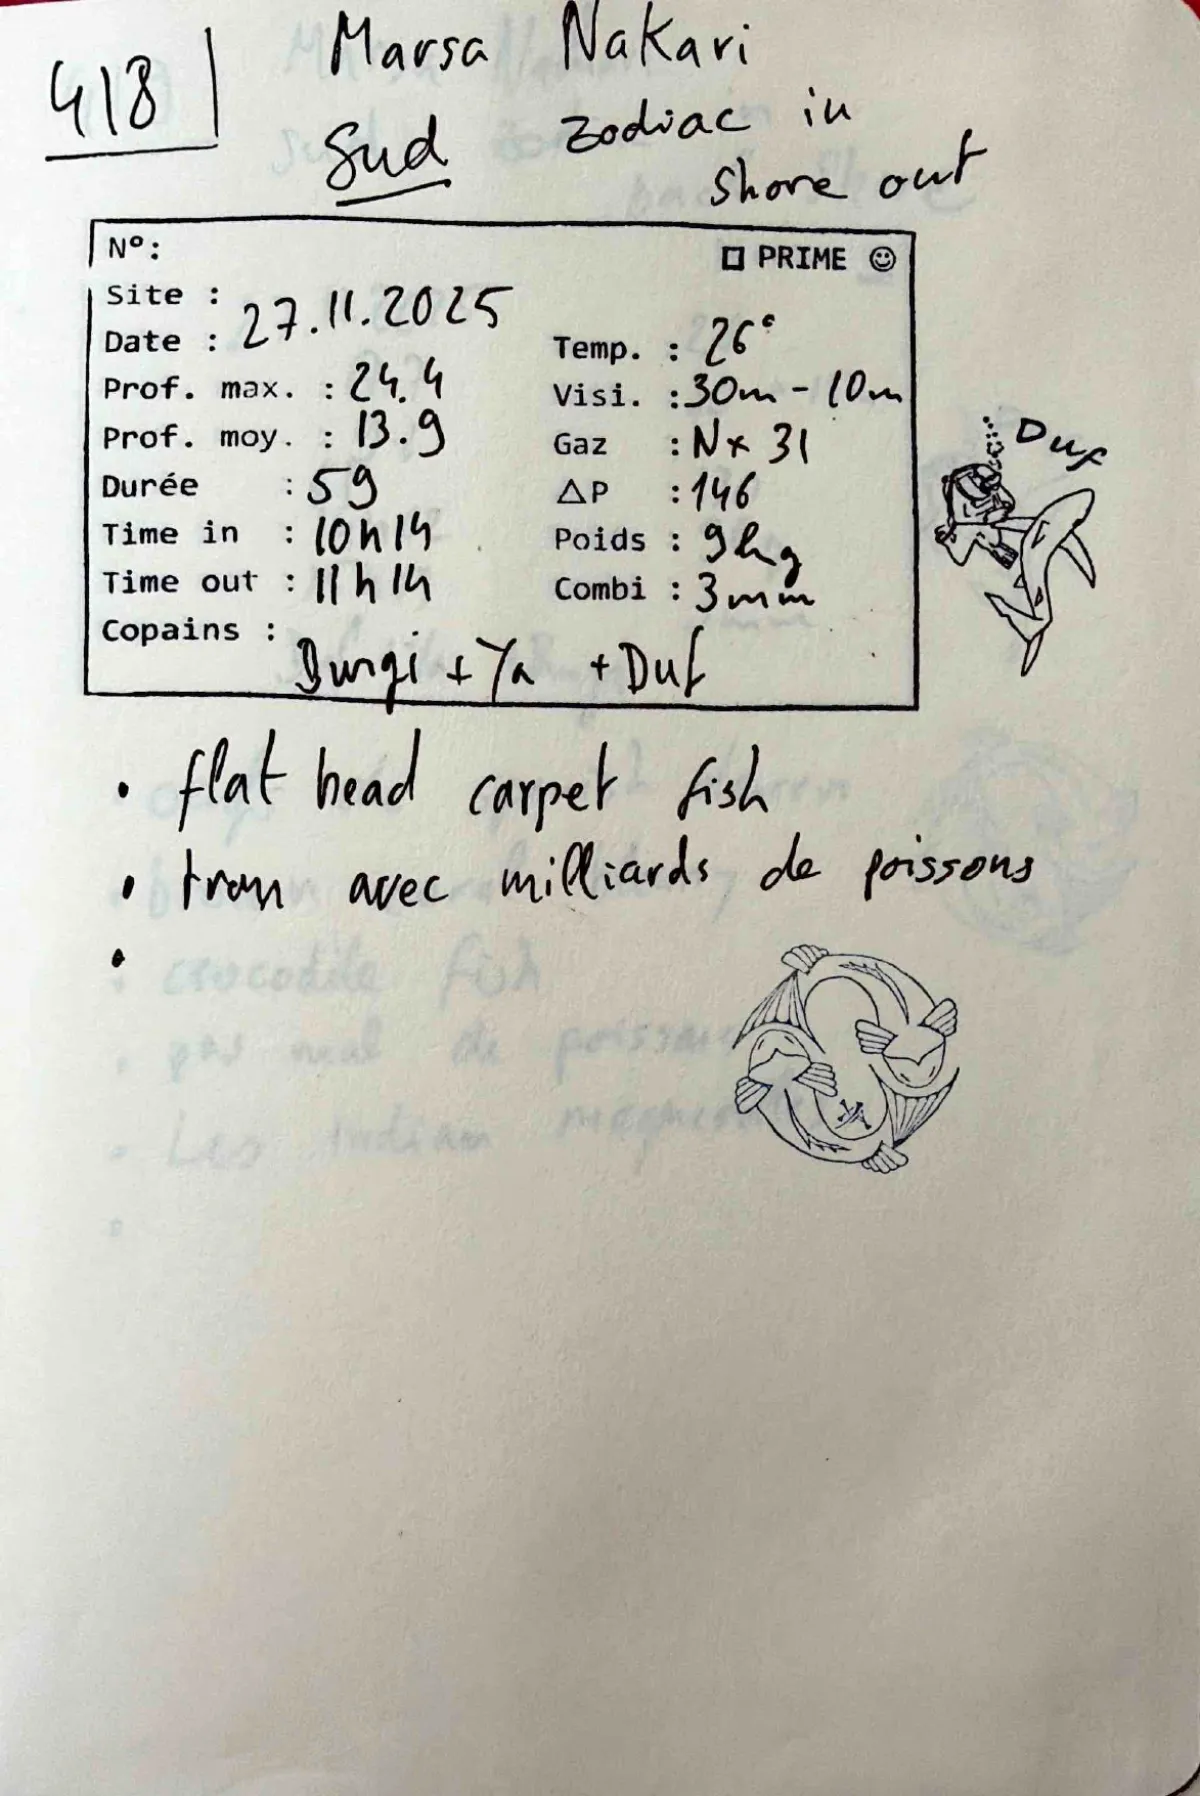 418 Marsa Nakari
Sud zodiac in
shore out
N°: □ PRIME ☺
Site :
Date : 27.11.2025 Temp. : 26°
Prof. max. : 24.4 Visi. : 30m - 10m
Prof. moy. : 13.9 Gaz : Nx 31
Durée : 59 ΔP : 146
Time in : 10h14 Poids : 9kg
Time out : 11h14 Combi : 3mm
Copains : Burgi + Ya + Duf
Duf
• flat head carpet fish
• trou avec milliards de poissons
•
crocodile fish
pas mal de poissons
Les Indian